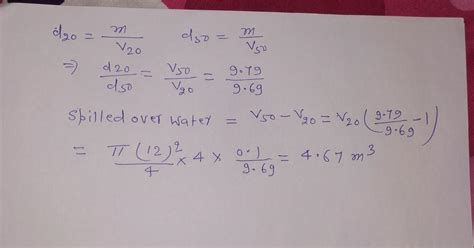 d20 = m/V20 d50 = m/V50
⇒ d20/d50 = V50/V20 = 9.79/9.69
Spilled over water = V50 - V20 = V20 (9.79/9.69 - 1)
= π(12)²/4 × 4 × 0.1/9.69 = 4.67 m³